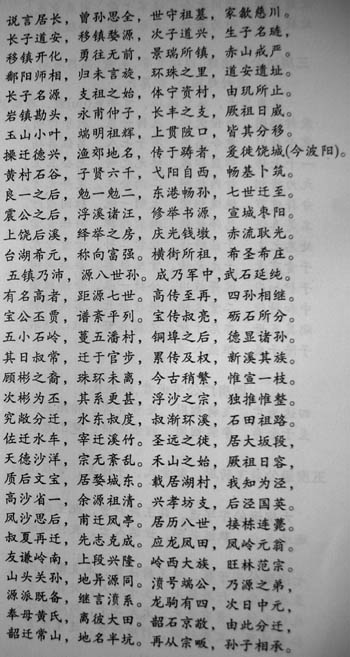 说言居长,曾孙思全,世守祖墓,家歙慈川。
长子道安,移镇婺源,次子道兴,生子名琏,
移镇开化,勇往无前,景瑞所镇,赤山戒严。
鄱阳师相,归未言旋,环珠之里,道安遗址。
长子名源,支祖之始,体宁资村,由玑所止。
岩镇勘头,永甫仲子,长丰之支,厥祖日威。
玉山小叶,端明祖辉,上贯陂口,皆其分移。
操迁德兴,渔郊地名,传于踌者,爰徙饶城(今波阳)。
黄村石谷,子贤六千,弋阳自西,畅基卜筑。
良一之后,勉一勉二,东港畅孙,七世迁至。
震公之后,浮溪诸汪,修举书源,宣城枣阳。
上饶后溪,绎举之房,庆光钱墩,赤流耿光。
台湖希元,称向富强。横街所祖,希圣希庄。
五镇乃沛,源八世孙。成乃军中,武石延纯。
有名高者,距源七世。高传至再,四孙相继。
宝公丕贾,谱紊平列。宝传叔亮,砺石所分。
五小石岭,蔓五潘村,铜埠之后,德显诸孙。
其日叔常,迁于官步,累传及权,新溪其族。
顾彬之裔,珠环未离,今古稍繁,惟宣一枝。
次彬为丕,其系更甚,浮沙之宗,独推惟整。
究敞分迁,水东叔度,叔渐环溪,石田祖路。
佐迁水车,宰迁溪竹。圣远之徒,居大坂段,
天德沙洋,宗无紊乱。禾山之始,厥祖日容,
质后文宝,居婺城东。载居湖村,我知为泾,
高沙省一,余源祖清。兴孝坊支,后泾国英。
凤沙思后,甫迁凤亭。居历八世,接栋连甍。
叔夏再迁,先志克成。应龙凤田,凤岭元翁。
友谦岭南,上段兴隆。岭西大族,旺林范宗。
山头关孙,地异源同。湏号端公,乃源之弟,
源派既备,继言湏系。龙驹有四,次日中元,
奉母黄氏,离彼大田。韶石京敬,由此分迁,
韶迁常山,地名半坑。再从宗畈,孙子相承。